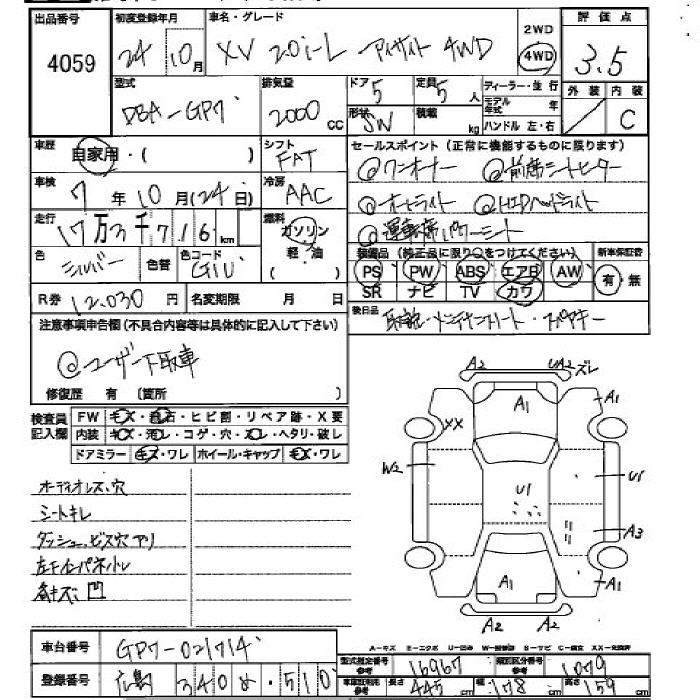 出品番号 初度登録年月 車名・グレード 2WD 評価点
4059 24 10月 XV 2.0i-L アイサイト 4WD 4WD 3.5
型式 排気量 ドア 定員 ディーラー・並行 外装 内装
DBA-GP7 2000cc 5 5人 モデル年式 年 C
形状 積載 ハンドル 左・右
SW kg
車歴 自家用・( ) シフト FAT セールスポイント(正常に機能するものに限ります)
@ワンオーナー @前席シートヒーター
車検 7年10月(24日) 冷房 AAC
@オートライト @HIDヘッドライト
走行 17万3千716km 燃料 ガソリン
@運転席パワーシート
軽・油
色 シルバー 色替 色コード G1U 装備品(純正品に限り○をつけてください) 新車保証書
PS PW ABS エアB AW 有・無
R券 12,030円 名変期限 月 日 SR ナビ TV カワ
注意事項申告欄(不具合内容等は具体的に記入して下さい) 後日品 取説・メンテナンスノート・スペアキー
@ユーザー下取車
修復歴 有 〔箇所 〕
検査員記入欄 FW キズ・飛石・ヒビ割・リペア跡・X要
内装 キズ・汚レ・コゲ・穴・スレ・ヘタリ・破レ
ドアミラー キズ・ワレ ホイール・キャップ キズ・ワレ
オーディオレス、穴
シートキレ
ダッシュ、ビス穴アリ
凹
A2 UA2 ズレ
A1 A1
XX
W2 U1
U1
A3
A1 A1
A2 A2
A-キズ E-エクボ U-凹み W-補修跡 S-サビ C-腐食 XX-交換済
車台番号 GP7-021714 型式指定番号 16967 類別区分番号 1079
登録番号 広島 340 め・510 車庫証明用 長さ 445cm 幅 178cm 高さ 159cm